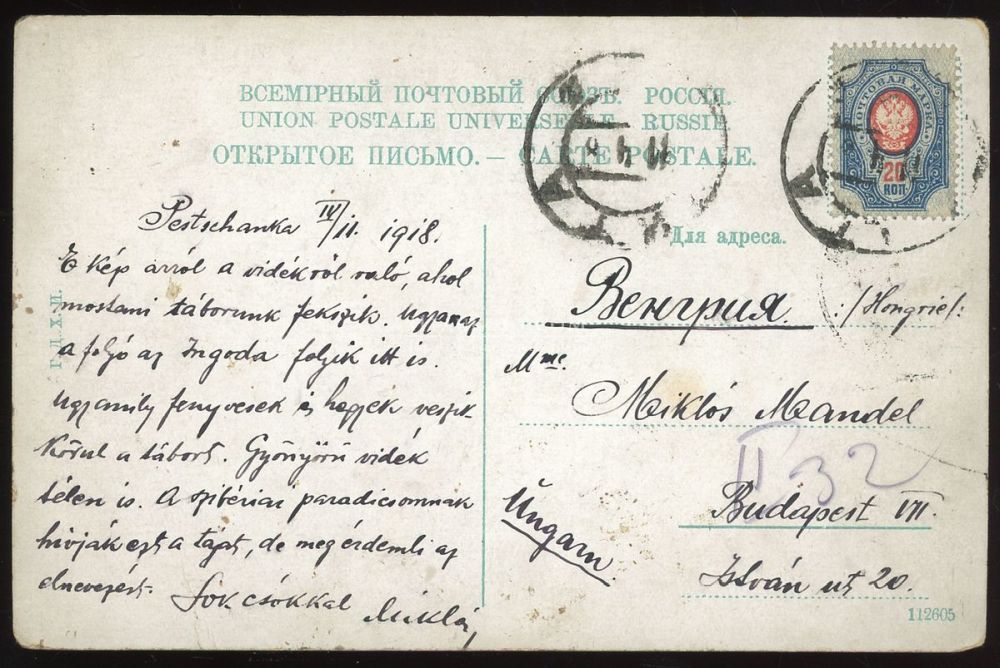 ВСЕМІРНЫЙ ПОЧТОВЫЙ СОЮЗЪ. РОССІЯ.
UNION POSTALE UNIVERSELLE. RUSSIE
ОТКРЫТОЕ ПИСЬМО. – CARTE POSTALE.
ПОЧТОВАЯ МАРКА
20
КОП
11 4 18
ЧИТА
Pestschanka IV/11. 1918.
E kép arról a vidékről való, ahol
mostani táborunk fekszik. Ugyanaz
a folyó az Ingoda folyik itt is.
Ugyamily fenyvesek és hegyek veszik
körül a tábort. Gyönyörű vidék
télen is. A szibériai paradicsomnak
hívják ezt a tájat, de meg érdemli az
elnevezést. Sok csókkal
Miklós
Для адреса.
Венгрия. :/Hongrie/:
Mme.
Miklós Mandel
II 32
Budapest VII.
Ungarn
István út 20.
112605